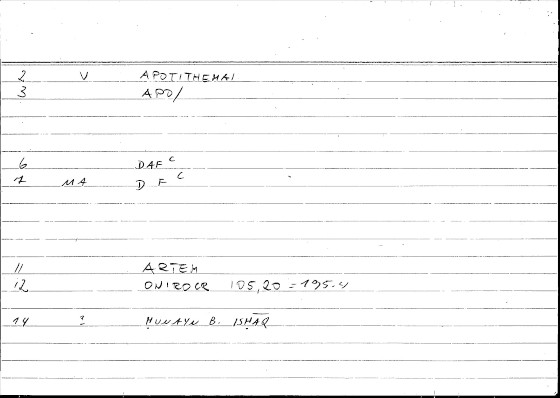 2 V APOTITHEMAI
3 APO/
6 DAFᶜ
7 MA D Fᶜ
11 ARTEM
12 ONIROCR 105,20 = 195.4
14 2 ḤUNAYN B. ISḤĀQ